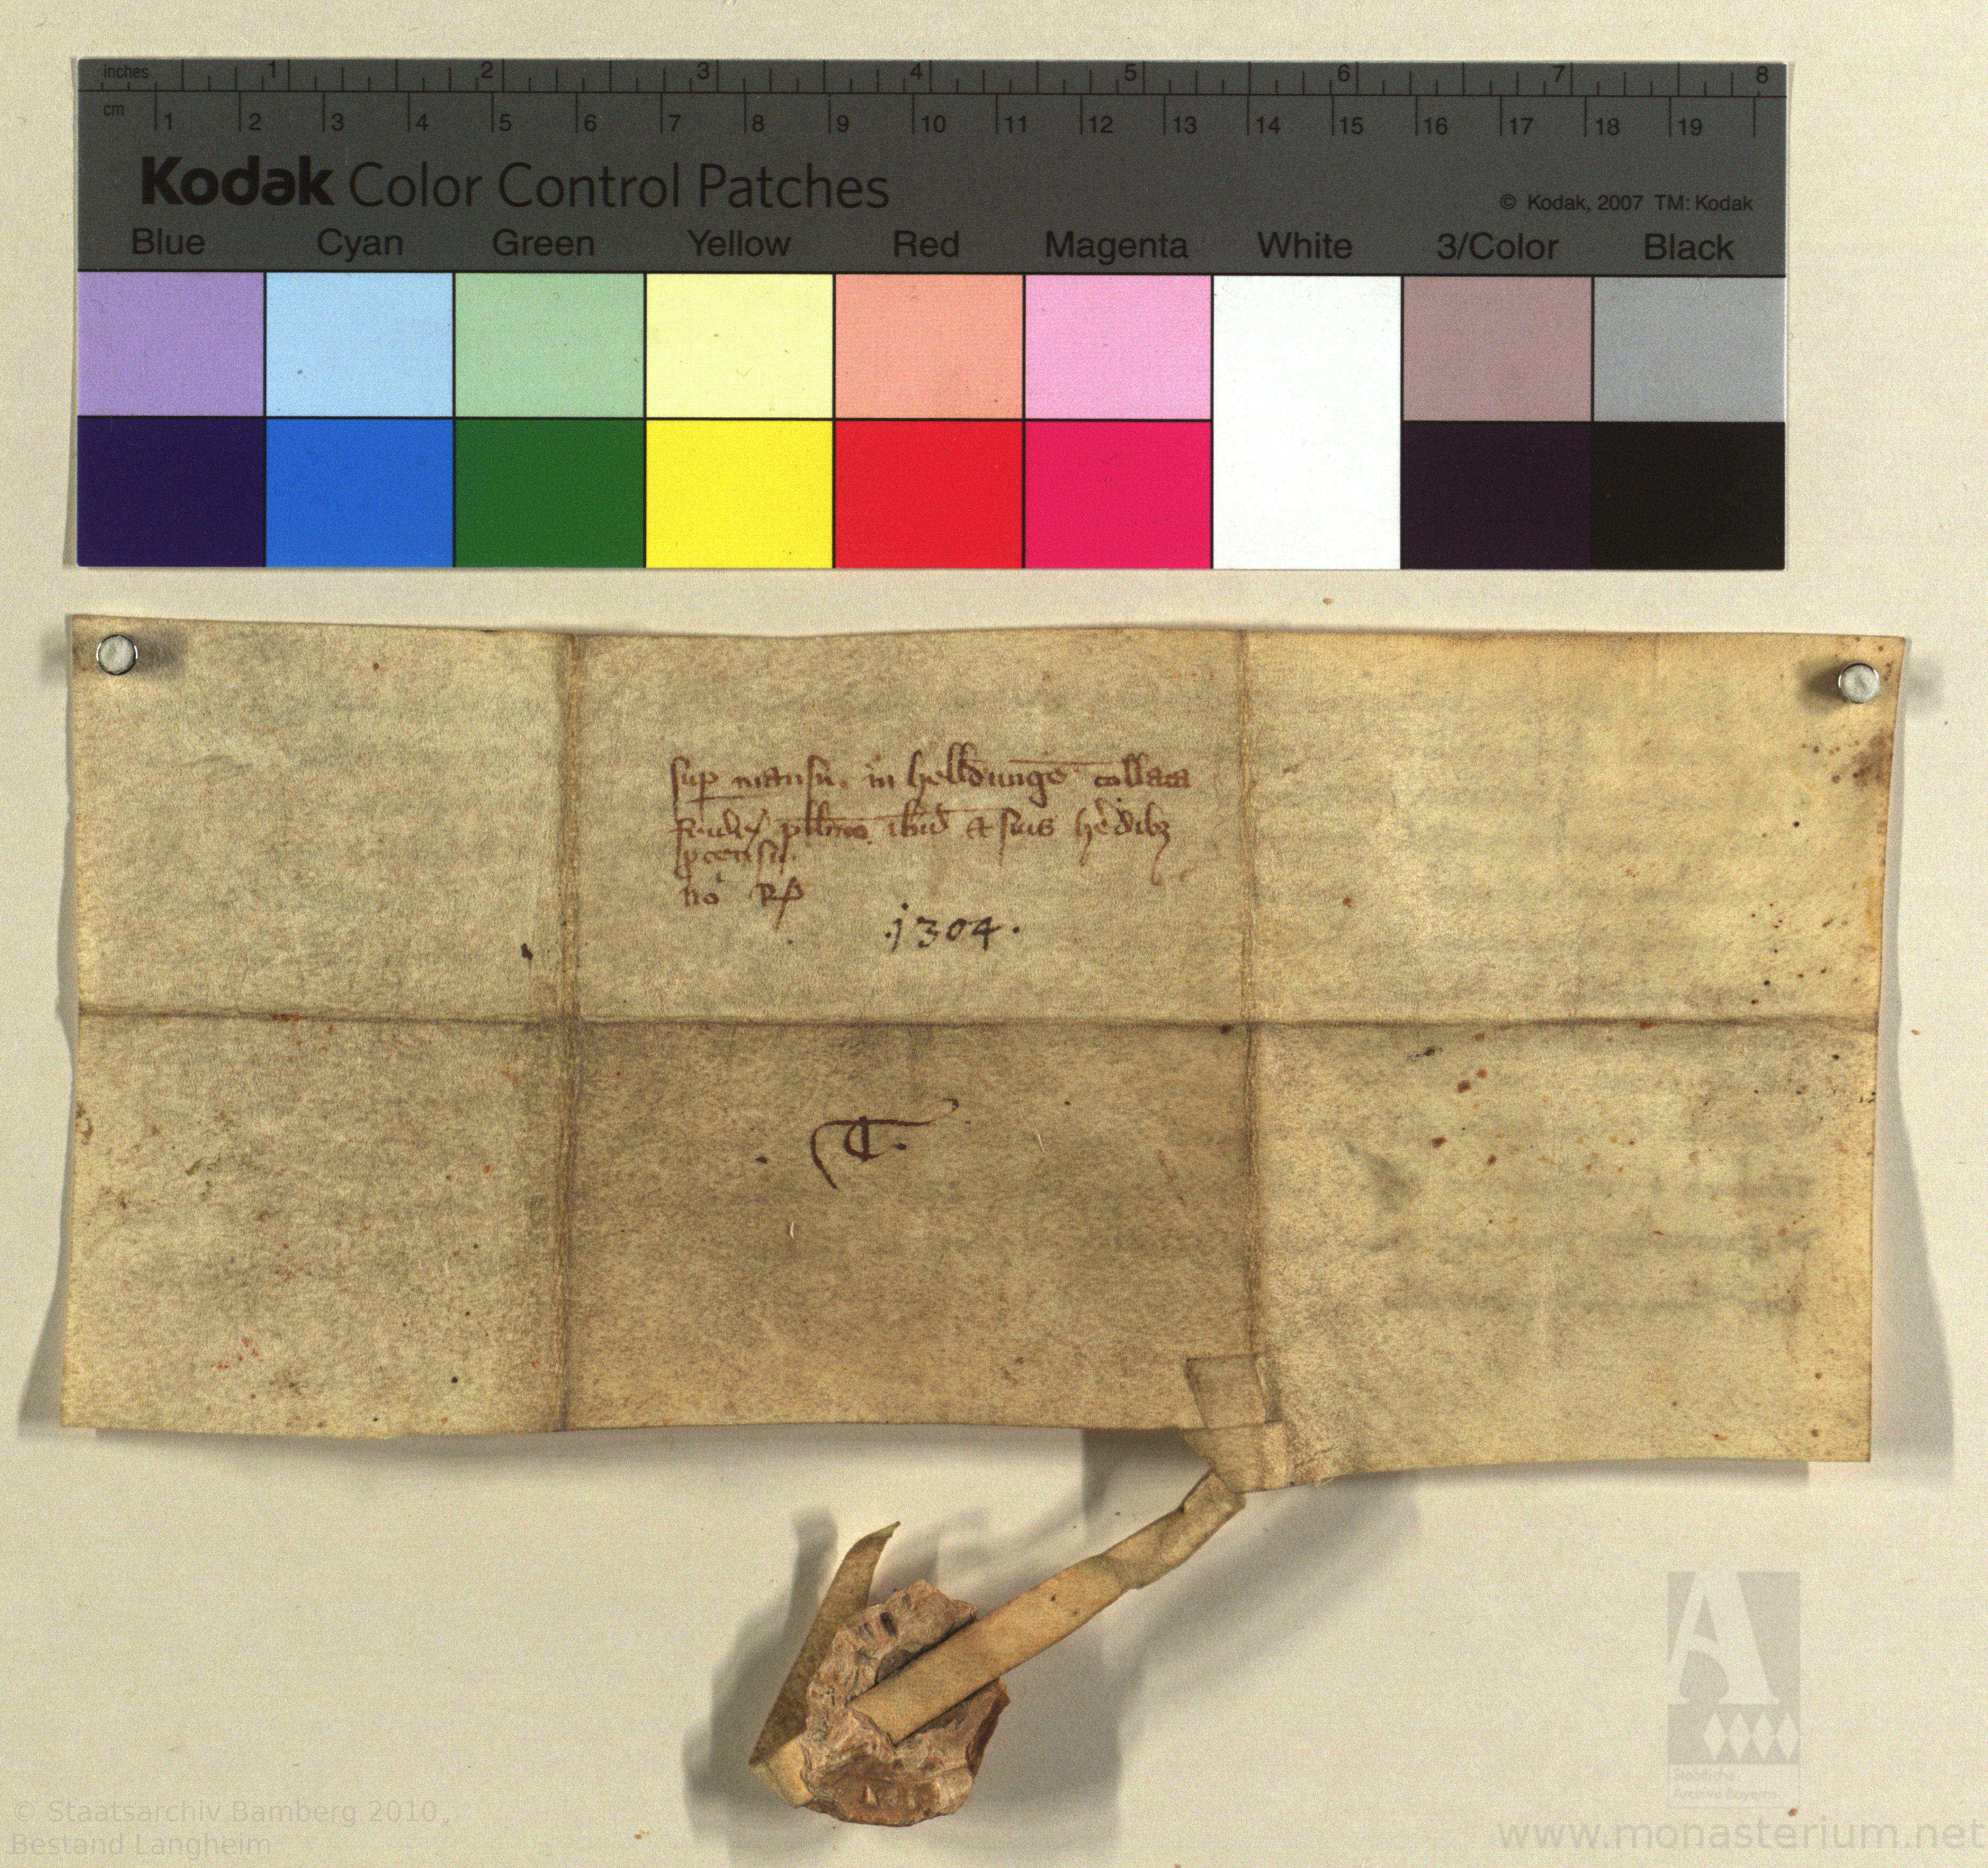 inches 1 2 3 4 5 6 7 8
cm 1 2 3 4 5 6 7 8 9 10 11 12 13 14 15 16 17 18 19
Kodak Color Control Patches
© Kodak, 2007 TM: Kodak
Blue Cyan Green Yellow Red Magenta White 3/Color Black
sup mansu. in helldunge collata
ibid et suis h'edibz
p censu.
no Rp
.j304.
© Staatsarchiv Bamberg 2010,
Bestand Langheim
Staatliche
Archive Bayerns
www.monasterium.net